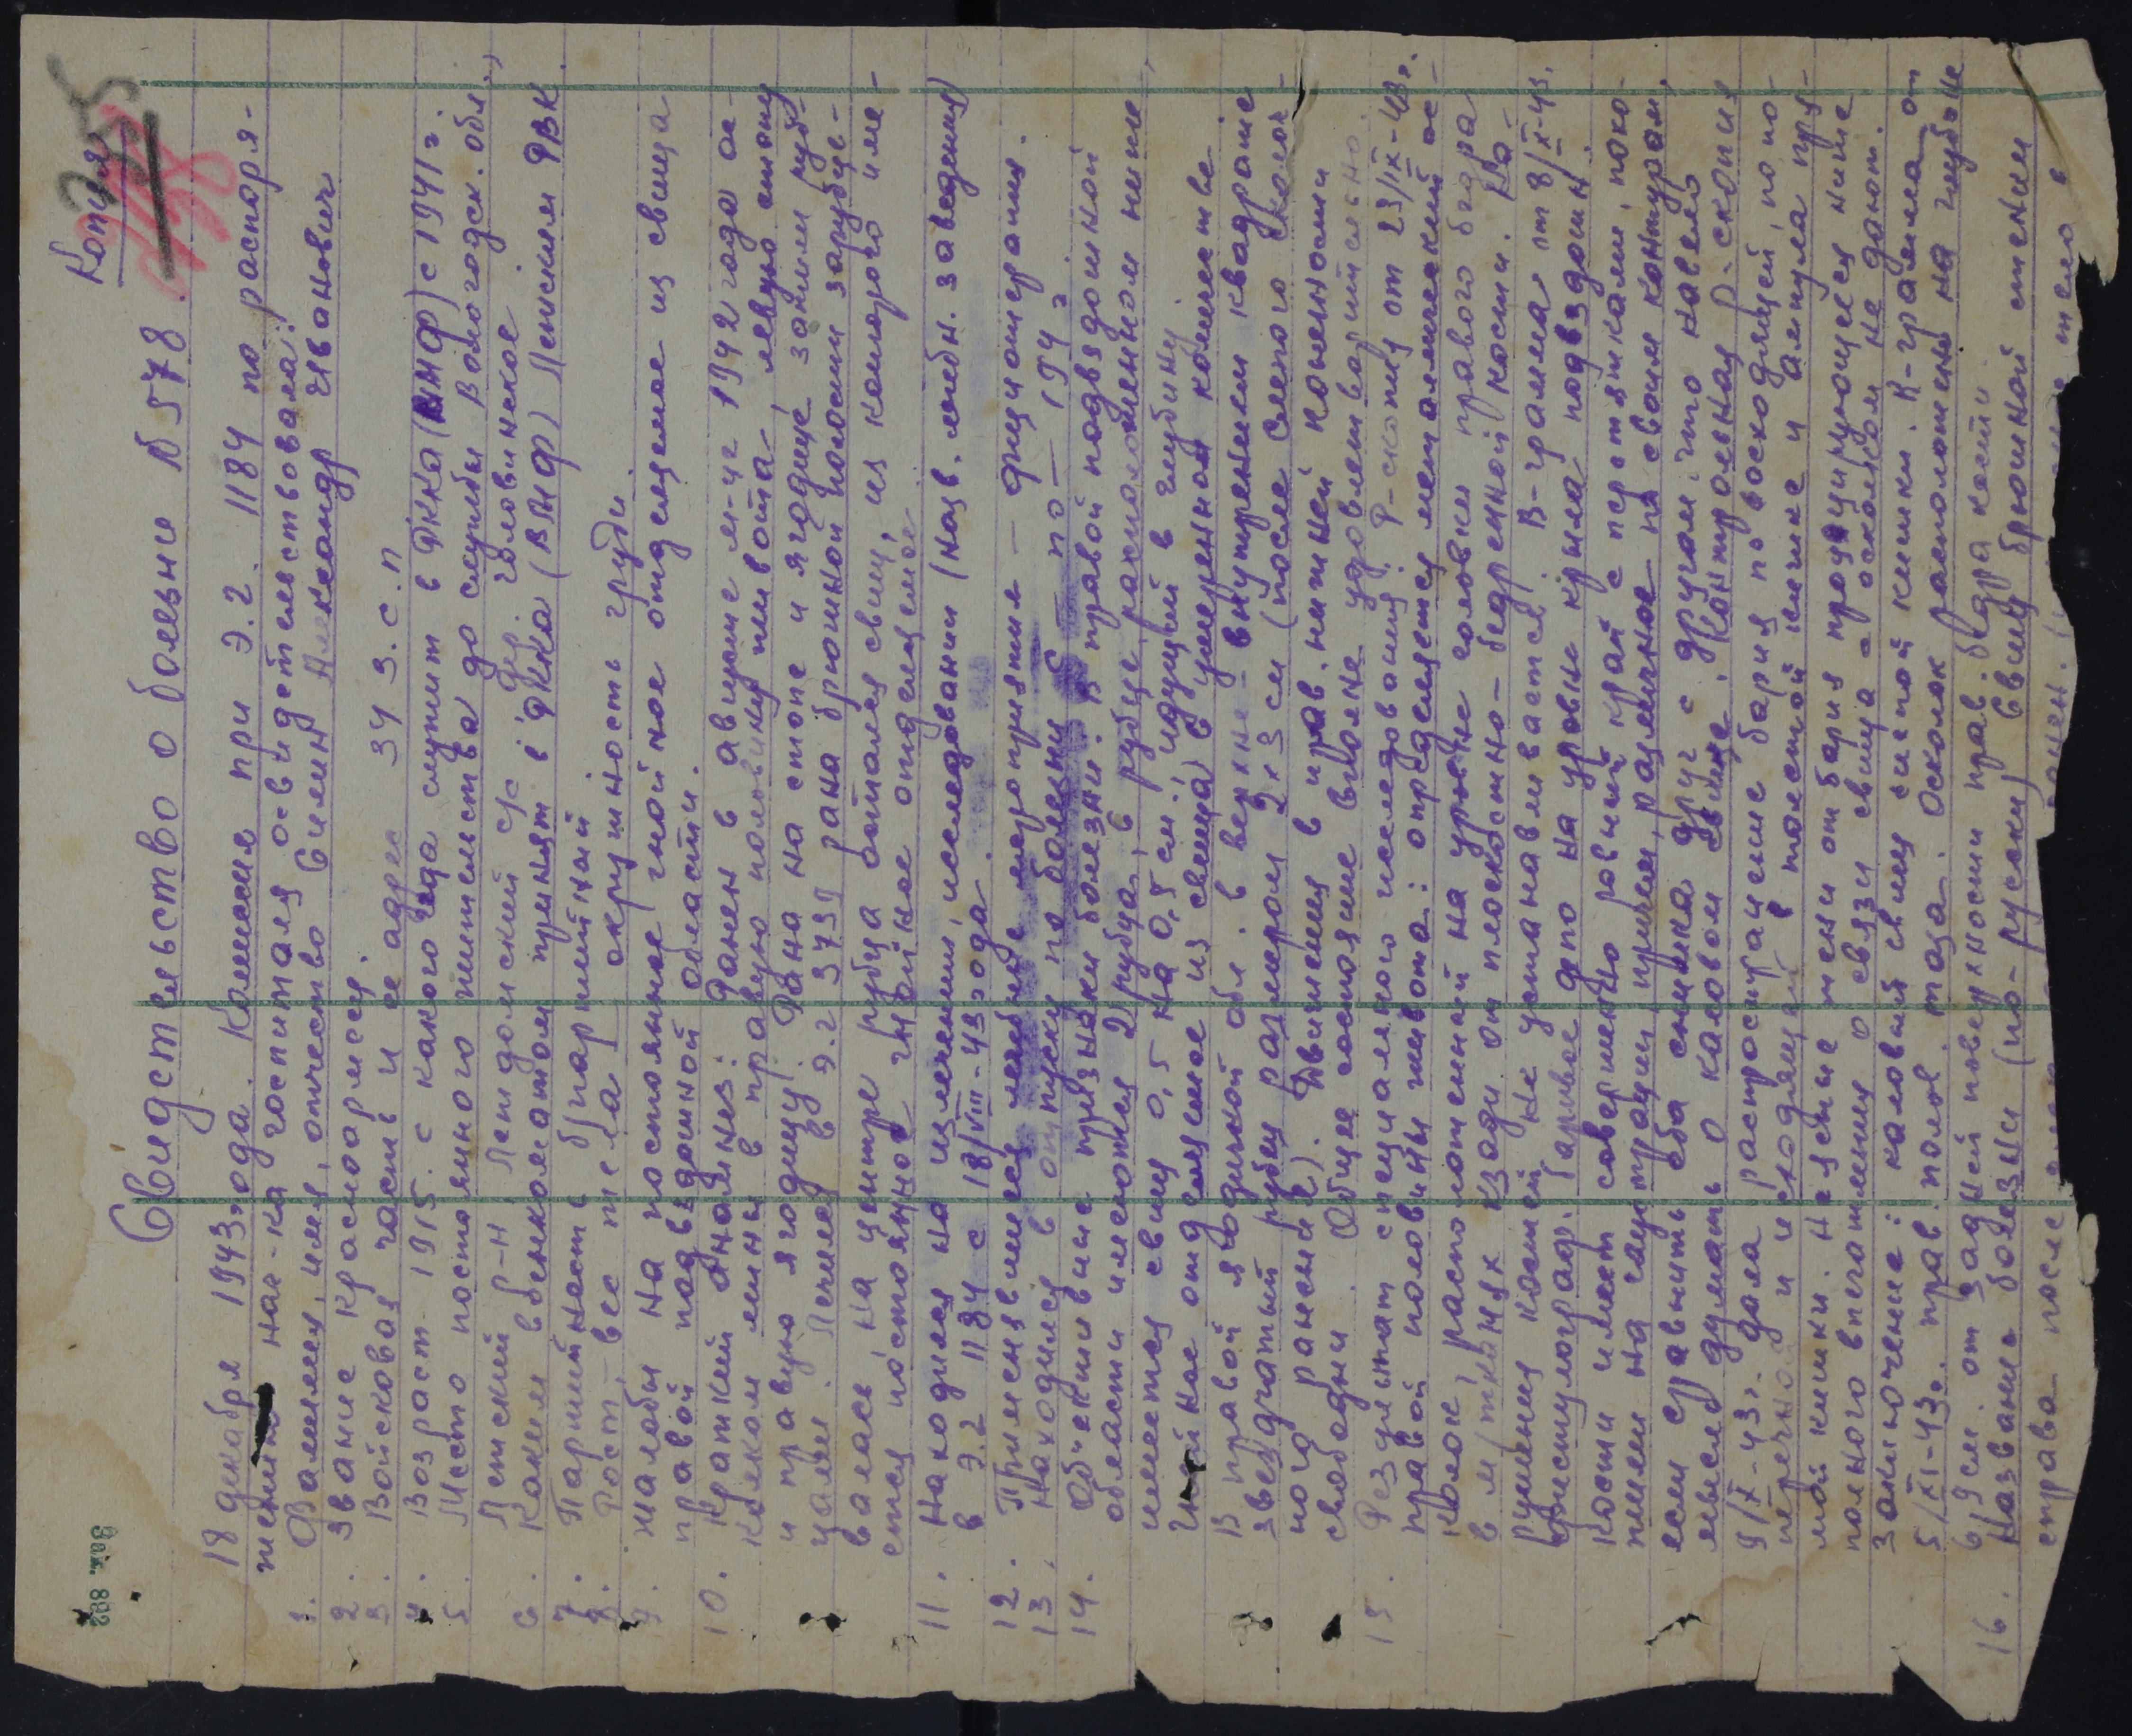 Копия
Свидетельство о болезни № 578
18 декабря 1943 года. Комиссия при Э.Г. 1184 по распоря-
жению нач-ка госпиталя освидетельствовала:
1. Фамилия, имя, отчество Силин Александр Иванович
2. Звание красноармеец.
3. Войсковая часть и ее адрес 34 з.с.п
4. Возраст 1915. с какого года служит в РККА (ВМФ) с 1941 г.
5. Место постоянного жительства до службы Вологодск. обл.,
Летский р-н, с/с дер. Головинское
6. Каким военкоматом принят в РККА (ВМФ) РВК
7. Партийность б/партийный
8. Рост, вес тела окружность груди
9. Жалобы на постоянное гнойное отделяемое из свища
правой подвздошной области.
10. Краткий анамнез: Ранен в августе м-це 1942 года ос-
колком мины в правую половину живота, левую стопу
и правую ягодицу. Рана на стопе и ягодице зажили руб-
цами. Лечился в Э.Г 3739 рана брюшной полости зарубце-
валась, на центре рубца остался свищ, из которого име-
ется постоянное гнойное отделяемое
11. Находился на излечении, исследовании (назв. лечебн. заведения)
в Э.Г 1184 с 18/VIII-43 года.
12. Применявшиеся лечебные мероприятия - физиотерапия.
13. Находился в отпуску по болезни с по - 194 г.
14. Объективные признаки болезни: В правой подвздошной
области имеются 2 рубца, в рубце, расположенном ниже
имеется свищ 0,5 на 0,5 см. идущий в глубину.
Гнойное отделяемое из свища в умеренном количестве.
В правой ягодичной обл. в верхне-внутреннем квадрате
звездчатый рубец размером 2х3 см (после слепого осколоч-
ного ранения). Движения в прав. нижней конечности
свободны. Общее состояние вполне удовлетворительно.
15. Результат специального исследования: Р-скопия от 23/IX-43г.
правой половины живота: определяется металлический ос-
колок, расположенный на уровне головки правого бедра
в м/тканях кзади от плоскостно-бедренной кости. На-
рушения костей не устанавливается. R-грамма от 8/X-43.
фистулограф. бариевое депо на уровне крыла подвздошн.
кости имеет совершенно ровный край с перетяжками,
есл сравнить оба снимка друг с другом. Это навело
мысль думать о каловом свище. Контрольная Р-скопия
9/X-43г. дала распространение бария по восходящей, по по-
перечной и нисходящей толстой кишке и ампула пря-
мой кишки.
полного впечатления о связи свища с осколком не дают.
Заключение: каловый свищ слепой кишки. R-грамма от
5/XI-43г. прав. полов. таза. Осколок расположен на глубине
6,9 см. от задней поверхности прав. бедра кости.
16. Название болезни (по-русски) Свищ брюшной стенки
справа после